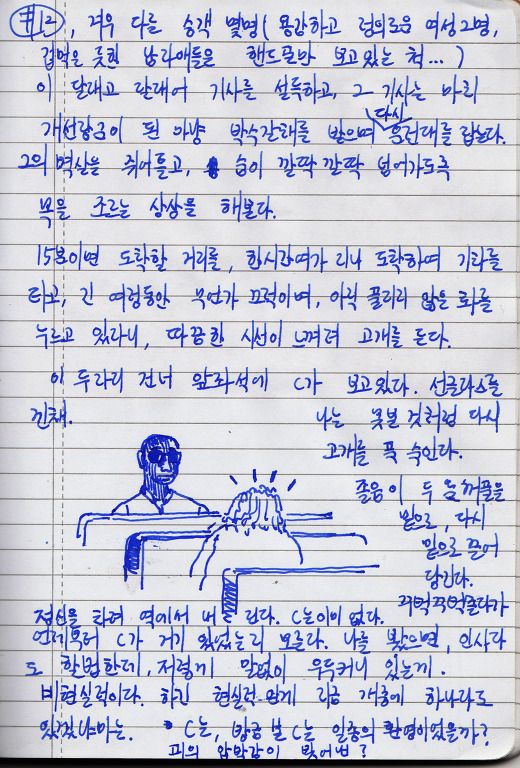 #12, 겨우 다른 승객 몇명(용감하고 정의로운 여성 2명,
겁먹은 듯한 남자애들은 핸드폰만 보고있는 척...)
이 달래고 달래어 기사를 설득하고, 그 기사는 마치
개선장군이 된 마냥 박수갈채를 받으며 다시 운전대를 잡는다.
그의 멱살을 쥐어틀고, 숨이 깔딱 깔딱 넘어가도록
목을 조르는 상상을 해본다.
15분이면 도착할 거리를, 한시간여가 지나 도착하여 기차를
타고, 긴 여정동안 무언가 끄적이며, 아직 풀리지 않은 화를
누르고 있자니, 따끔한 시선이 느껴져 고개를 든다.
이 두자리 건너 앞좌석에 C가 보고있다. 선글라스를
낀채.
나는 못본 것처럼 다시
고개를 푹 숙인다.
졸음이 두 눈꺼풀을
밑으로, 다시
밑으로 끌어
당긴다.
꾸벅꾸벅졸다가
정신을 차려 역에서 내린다. C는 이미 없다.
언제부터 C가 거기 있었는지 모른다. 나를 봤으면, 인사라
도 할법한데, 저렇게 말없이 우두커니 있는게.
비현실적이다. 하긴 현실적인게 지금 개중에 하나라도
있겠냐마는. C는, 방금 본 C는 일종의 환영이었을까?
피의 압박감이 빚어낸?